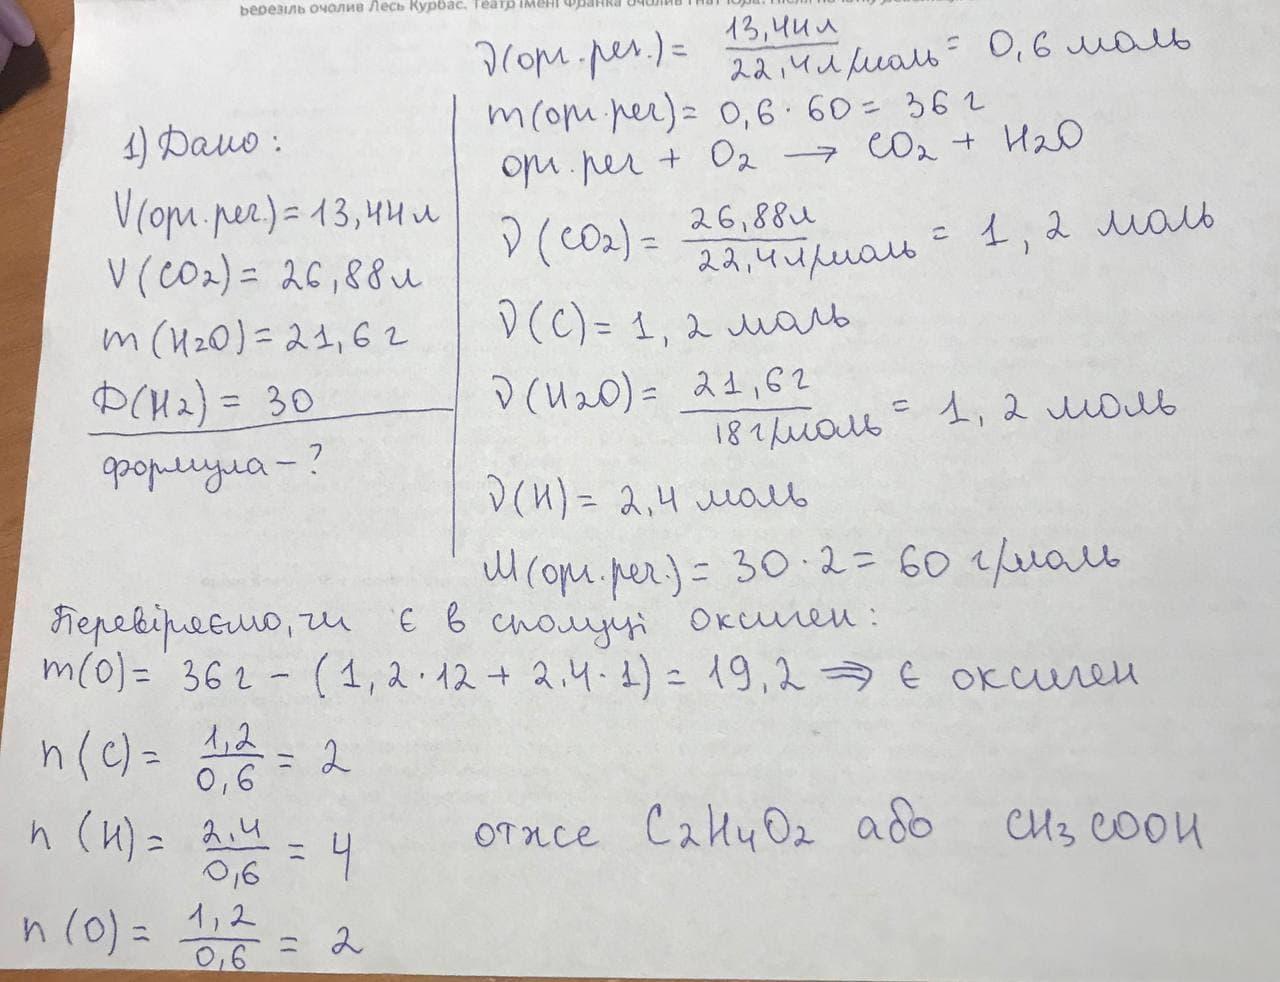 Березіль очолив Лесь Курбас. Театр імені Франка очолив Гнат Юра.
1) Дано:
V(орг.реч.) = 13,44л
V(CO2) = 26,88л
m(H2O) = 21,6г
D(H2) = 30
формула - ?
ν(орг.реч.) = 13,44л / 22,4л/моль = 0,6 моль
m(орг.реч) = 0,6 · 60 = 36 г
орг.реч + O2 → CO2 + H2O
ν(CO2) = 26,88л / 22,4л/моль = 1,2 моль
ν(C) = 1,2 моль
ν(H2O) = 21,6г / 18г/моль = 1,2 моль
ν(H) = 2,4 моль
M(орг.реч.) = 30 · 2 = 60 г/моль
Перевіряємо, чи є в сполуці оксиген:
m(O) = 36г - (1,2 · 12 + 2,4 · 1) = 19,2 ⇒ є оксиген
n(C) = 1,2 / 0,6 = 2
n(H) = 2,4 / 0,6 = 4
n(O) = 1,2 / 0,6 = 2
отже C2H4O2 або CH3COOH